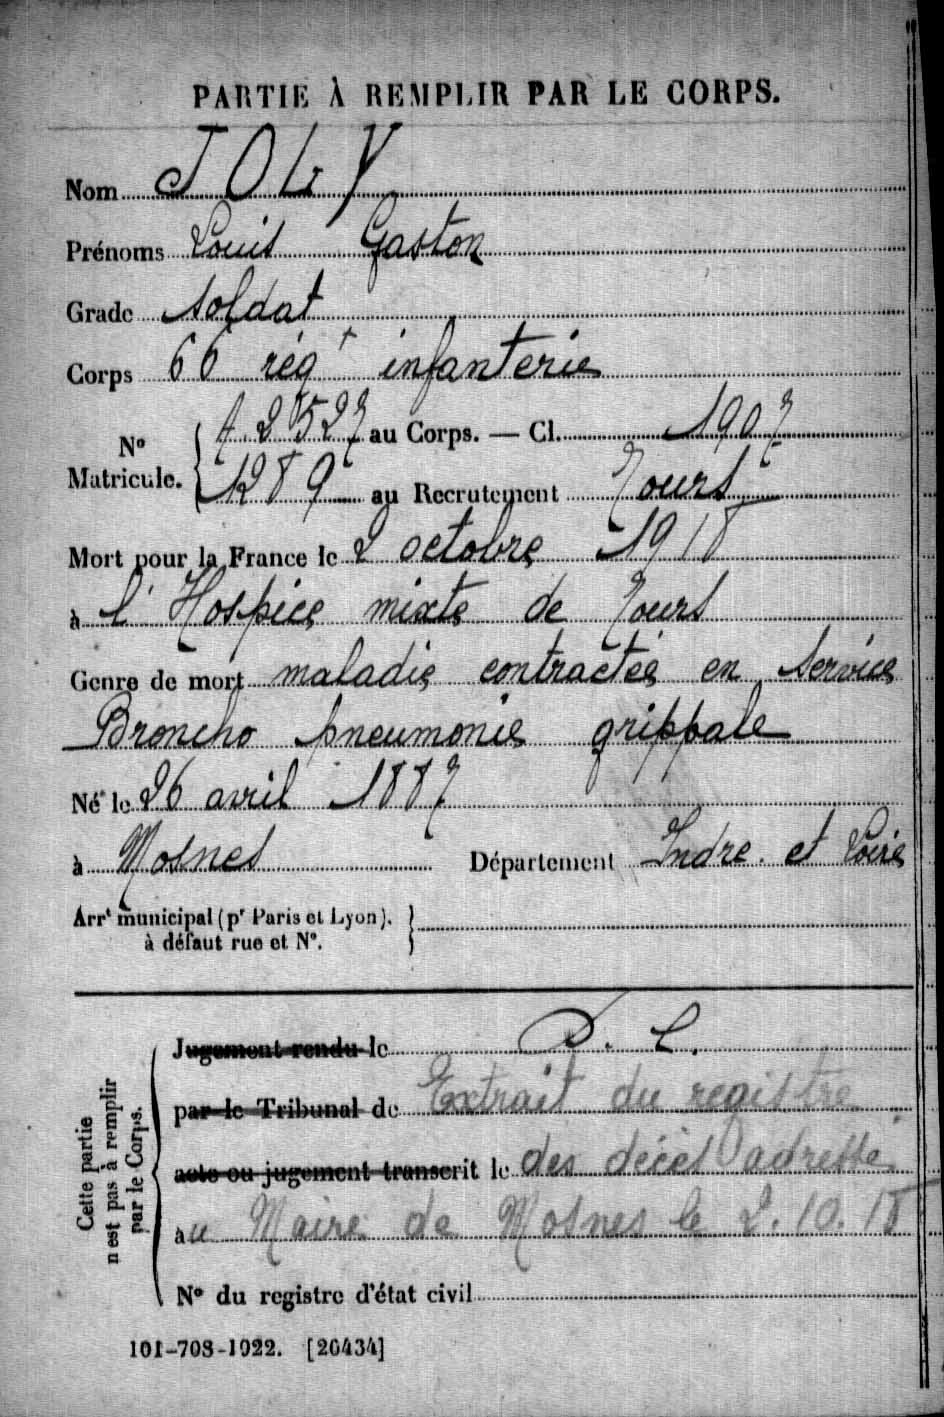 PARTIE À REMPLIR PAR LE CORPS.
Nom JOLY
Prénoms Louis Gaston
Grade soldat
Corps 66 régt infanterie
No Matricule. { A. 2527 au Corps. — Cl. 1907
1289 au Recrutement Tours
Mort pour la France le 2 octobre 1918
à l'Hospice mixte de Tours
Genre de mort maladie contractée en service
Broncho pneumonie grippale
Né le 26 avril 1887
à Mosnes Département Indre et Loire
Arrt municipal (pr Paris et Lyon).
à défaut rue et No.
Cette partie n'est pas à remplir par le Corps.
Jugement rendu le D. C.
par le Tribunal de Extrait du registre
acte ou jugement transcrit le des décès adressé
au Maire de Mosnes le 2.10.18
No du registre d'état civil
101-708-1922. [26434]